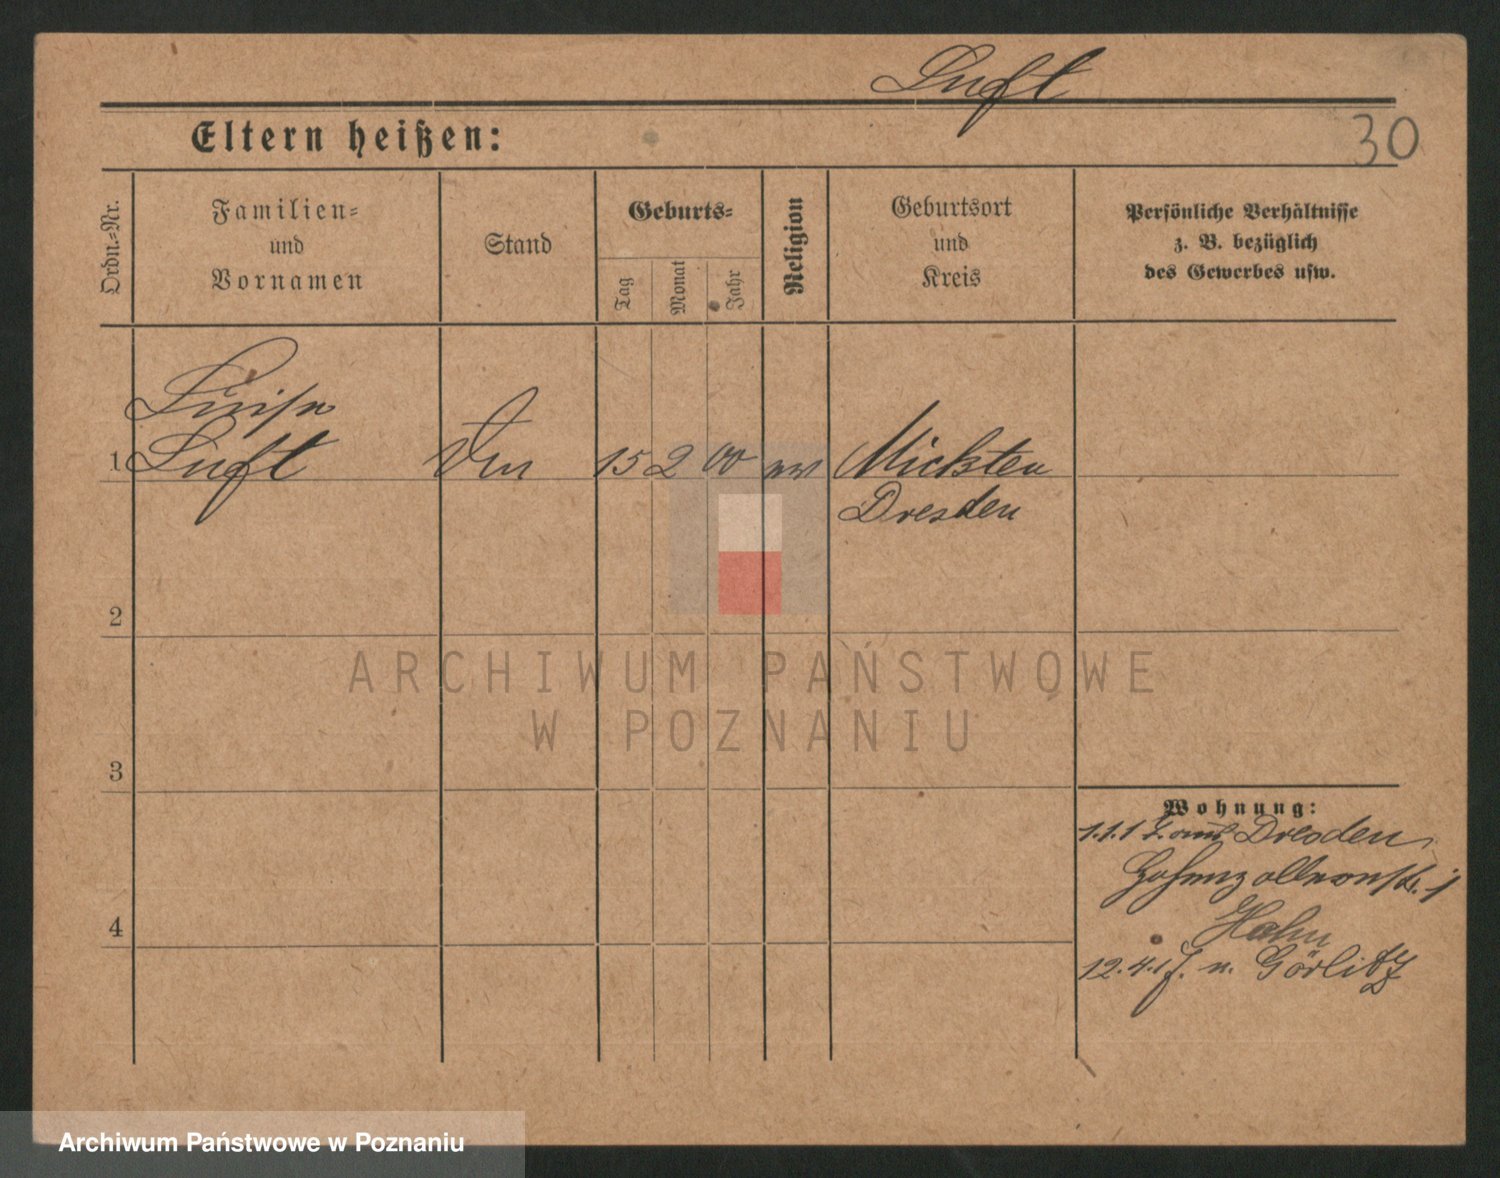 Luft
Eltern heißen:
30
Ordn.-Nr.
Familien-
und
Vornamen
Stand
Geburts-
Tag
Monat
Jahr
Religion
Geburtsort
und
Kreis
Persönliche Verhältnisse
z. B. bezüglich
des Gewerbes usw.
Luise
1 Luft 15 2 00 ev Mickten
Dresden
2
ARCHIWUM PAŃSTWOWE
W POZNANIU
3
Wohnung:
1.1.17. aus Dresden
Hohenzollernstr.
Hahn
4
12.4.17. n. Görlitz
Archiwum Państwowe w Poznaniu